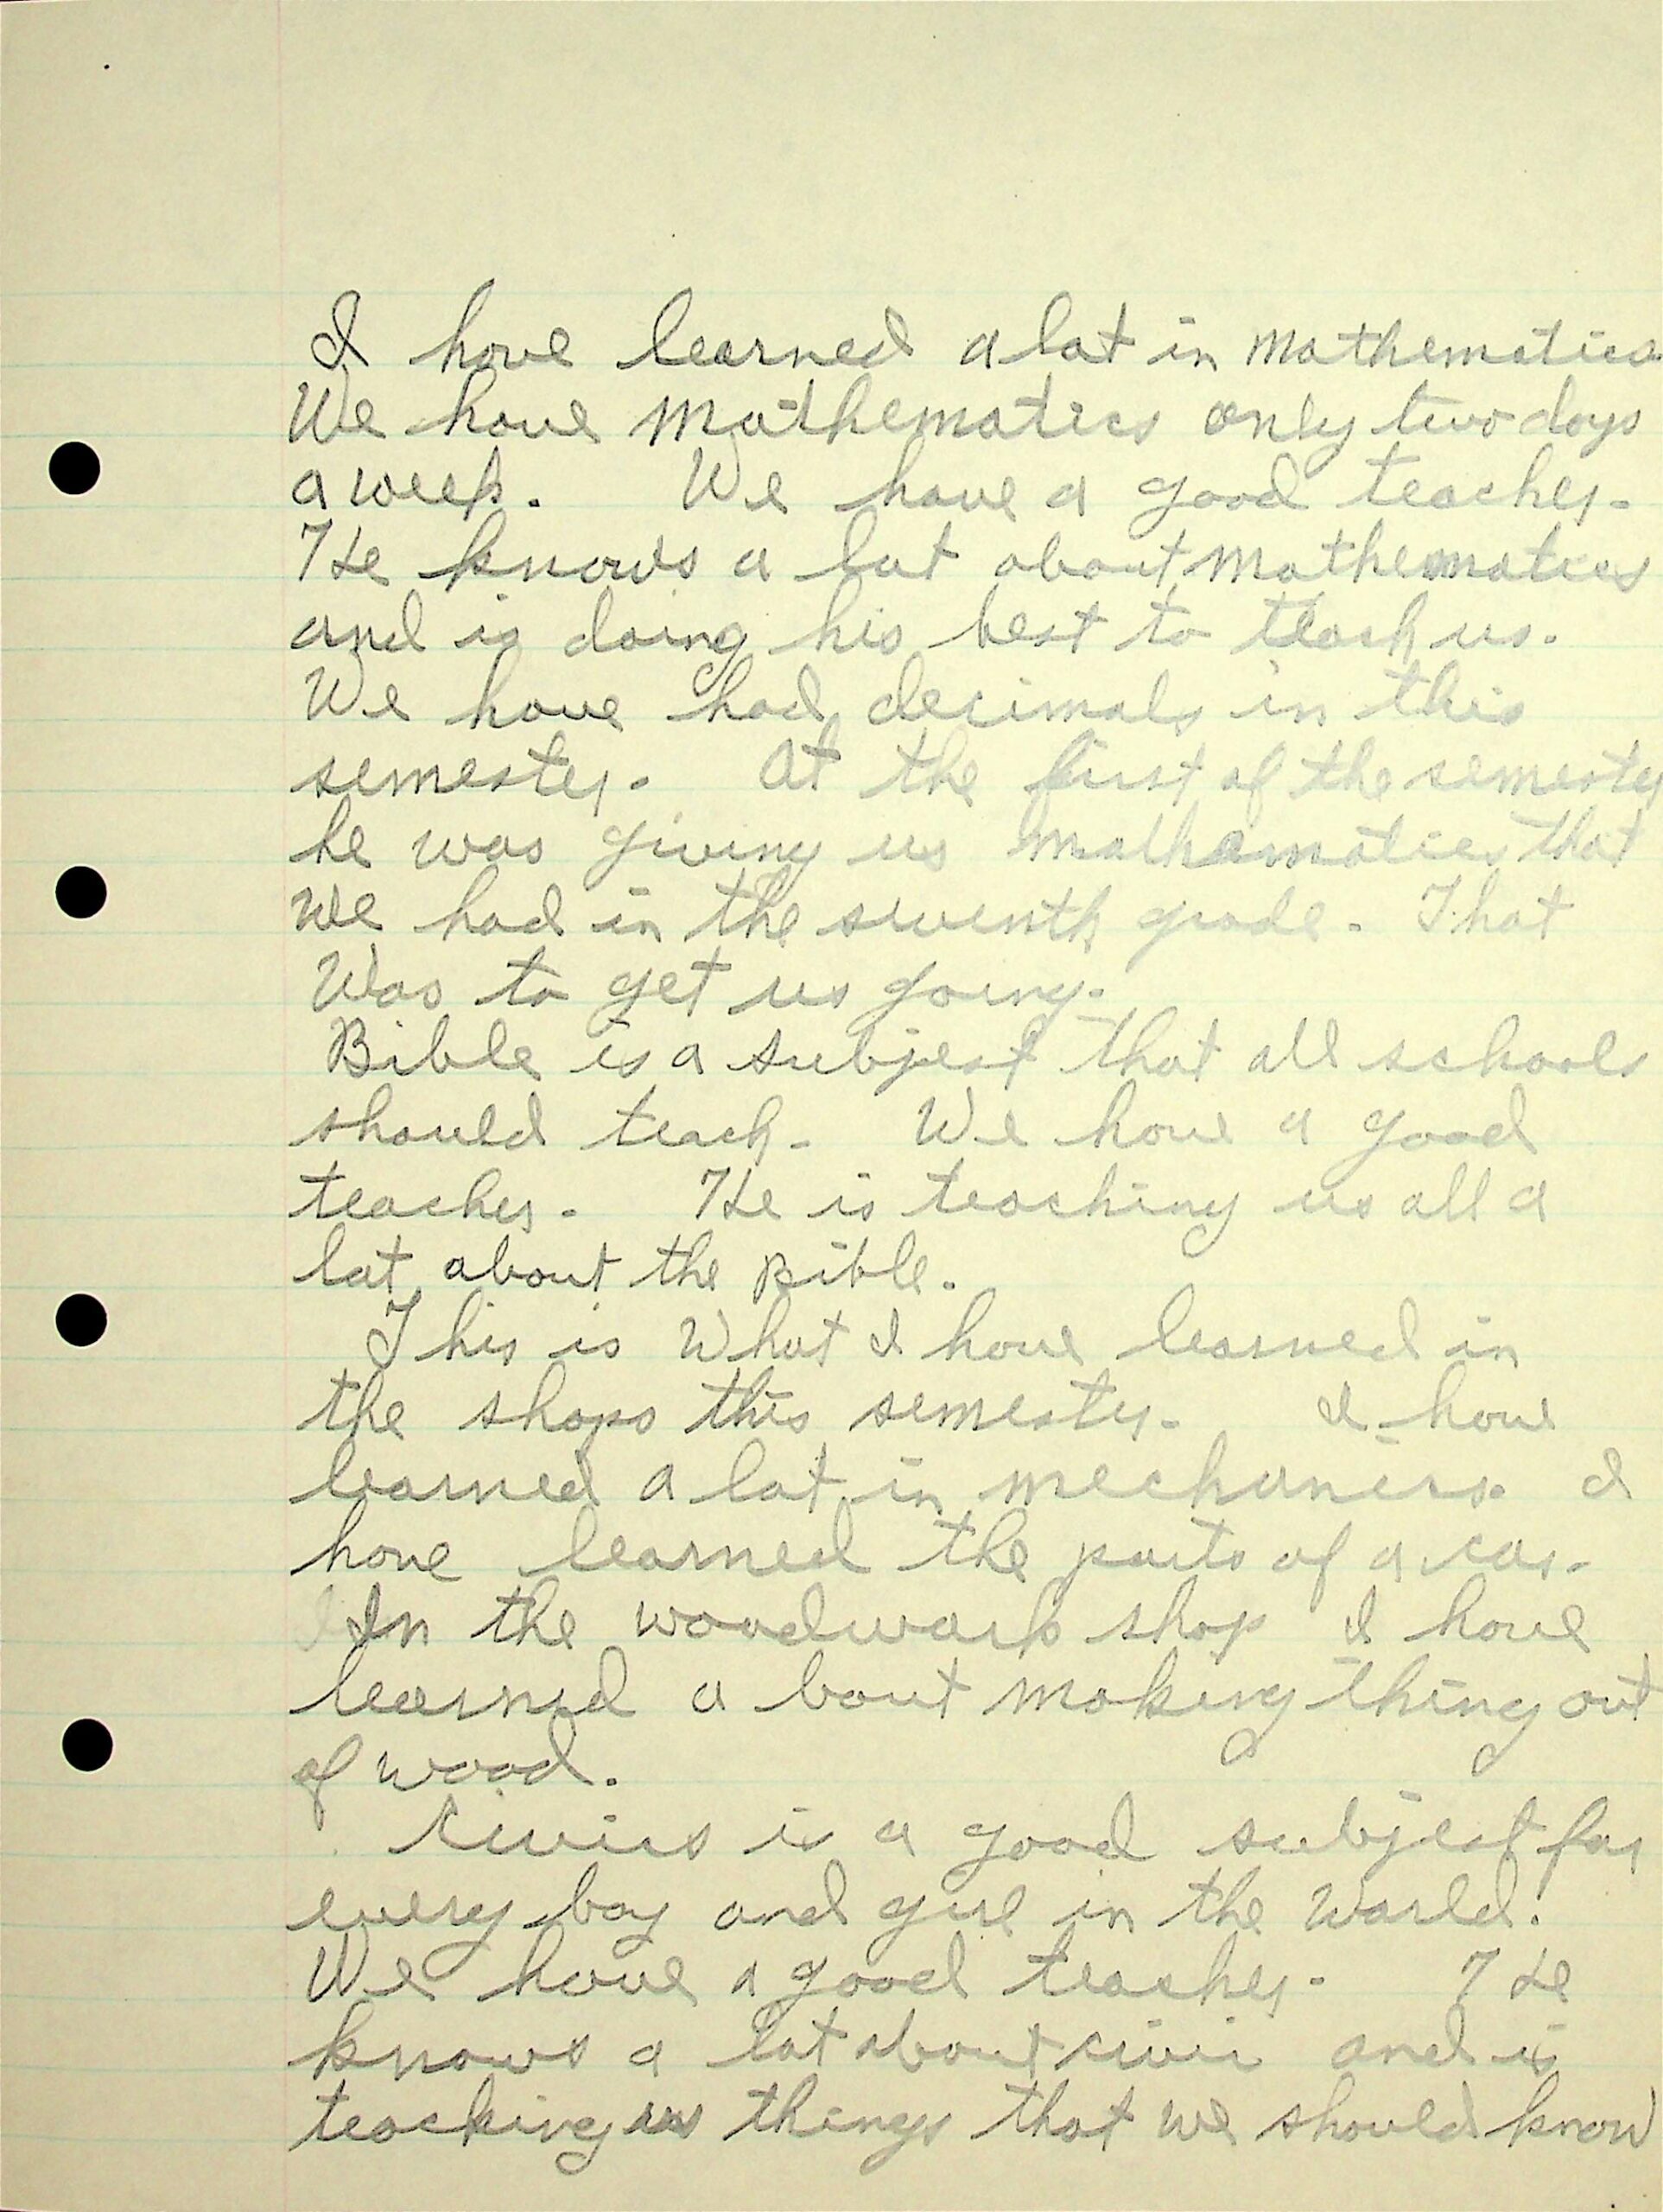 I have learned a lot in mathematics
We have mathematics only two days
a week. We have a good teacher.
He knows a lot about mathematics
and is doing his best to teach us.
We have had decimals in this
semester. At the first of the semester
he was giving us mathamatics that
we had in the seventh grade. That
Was to get us going.
Bible is a subject that all schools
should teach. We have a good
teacher. He is teaching us all a
lot about the Bible.
This is What I have learned in
the shops this semester. I have
learned a lot in mechanics. I
have learned the parts of a car.
In the woodwark shop I have
learned a bout making thing out
of wood.
Civics is a good subject for
every boy and girl in the World.
We have a good teacher. He
knows a lot about civic and is
teacking us things that we should know